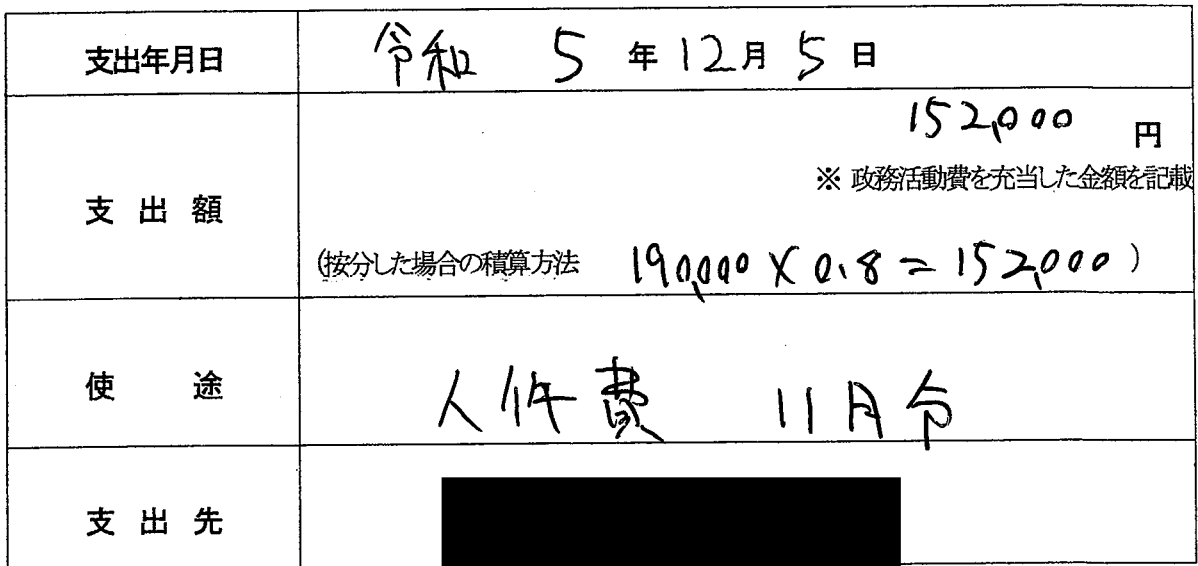 支出年月日 令和 5 年 12月 5 日
152,000 円
※ 政務活動費を充当した金額を記載
支出額
(按分した場合の積算方法 190,000 × 0.8 = 152,000 )
使途 人件費 11月分
支出先